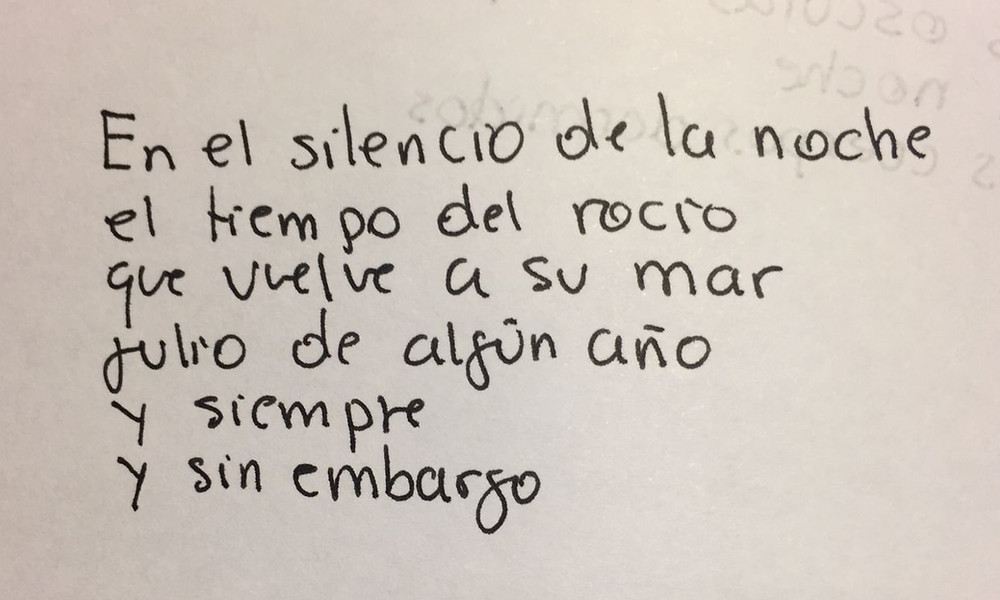 En el silencio de la noche
el tiempo del rocío
que vuelve a su mar
julio de algún año
y siempre
y sin embargo